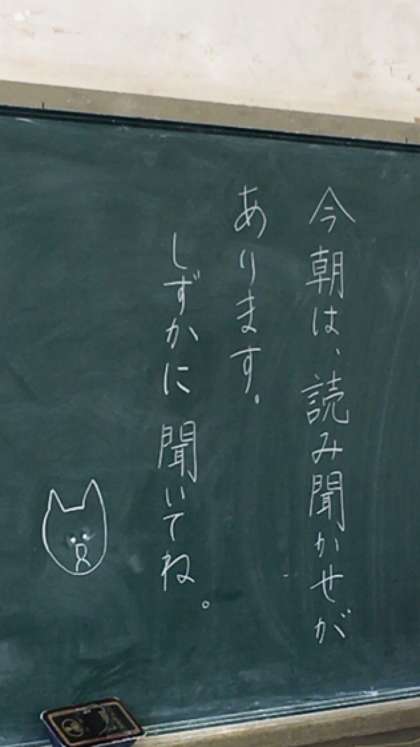 今朝は、読み聞かせが
あります。
しずかに聞いてね。